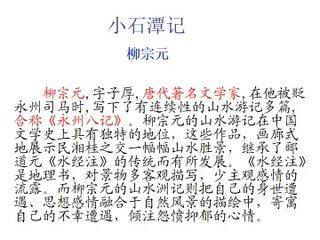 小石潭记
柳宗元
柳宗元,字子厚,唐代著名文学家,在他被贬
永州司马时,写下了有连续性的山水游记多篇,
合称《永州八记》。柳宗元的山水游记在中国
文学史上具有独特的地位,这些作品,画廊式
地展示民湘桂之交一幅幅山水胜景,继承了郦
道元《水经注》的传统而有所发展。《水经注》
是地理书,对景物多客观描写,少主观感情的
流露。而柳宗元的山水洲记则把自己的身世遭
遇、思想感情融合于自然风景的描绘中,寄寓
自己的不幸遭遇,倾注怨愤抑郁的心情。